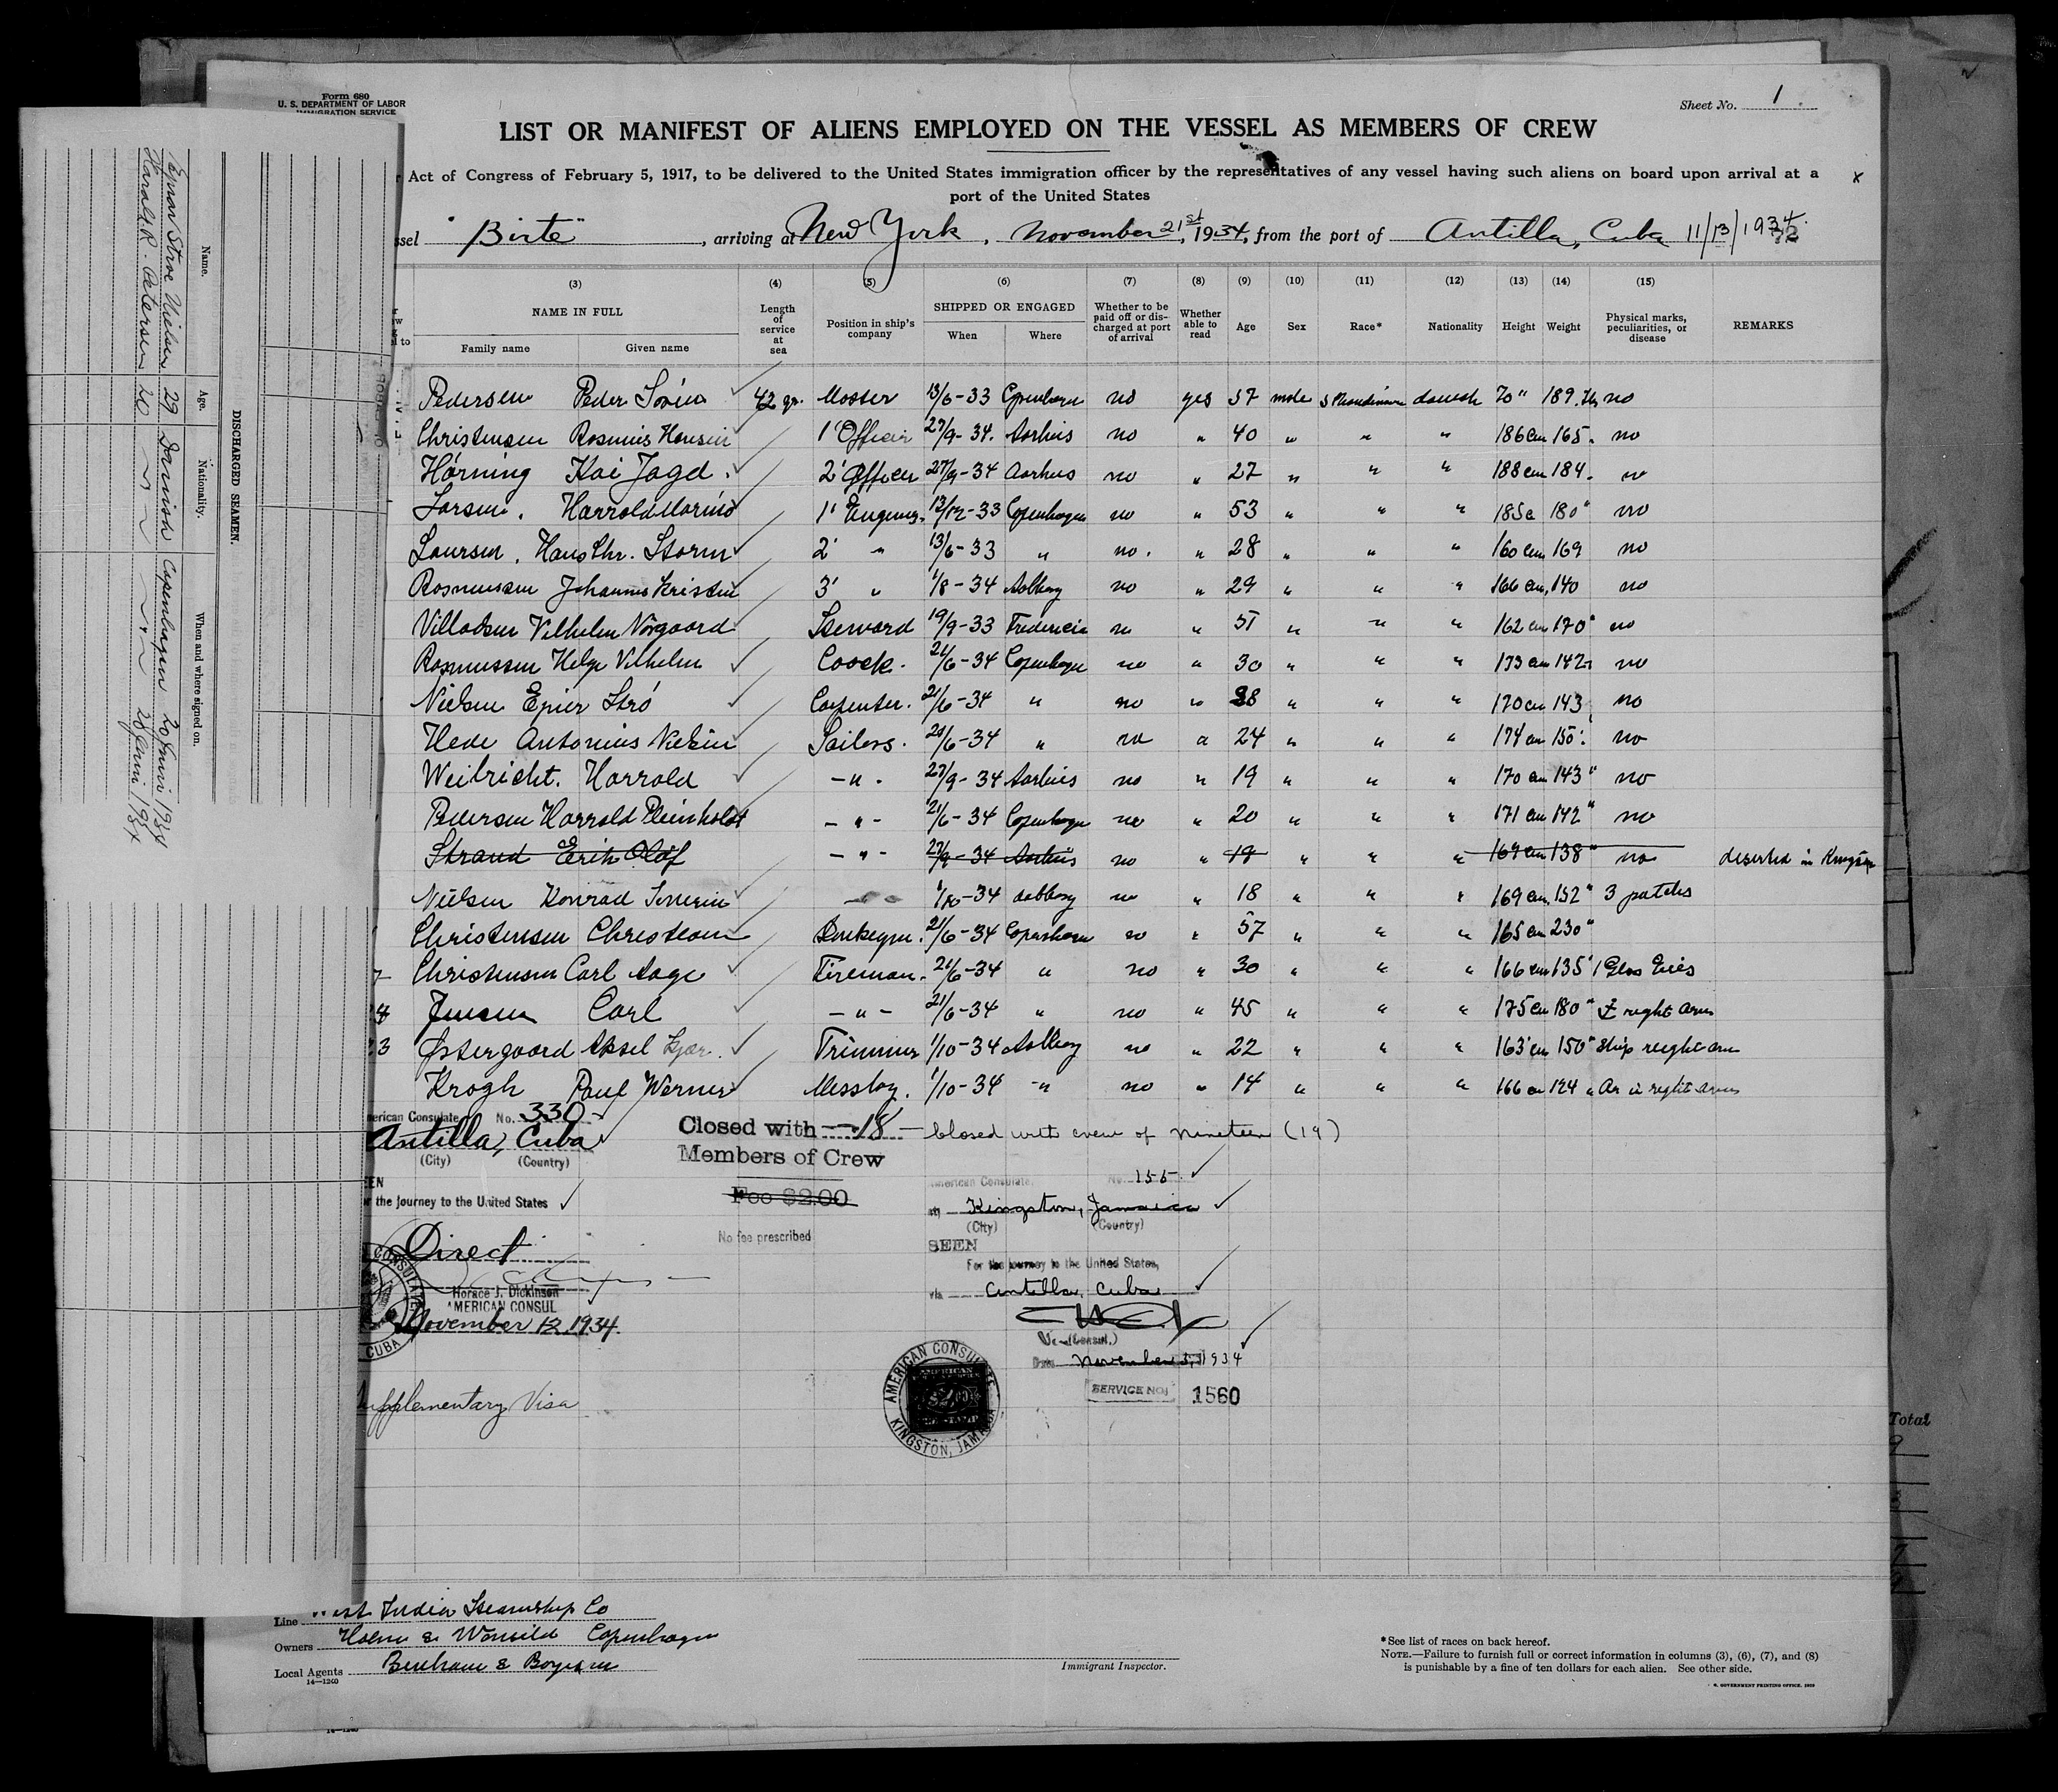 Form 680
U. S. DEPARTMENT OF LABOR
IMMIGRATION SERVICE
Sheet No. 1
LIST OR MANIFEST OF ALIENS EMPLOYED ON THE VESSEL AS MEMBERS OF CREW
Act of Congress of February 5, 1917, to be delivered to the United States immigration officer by the representatives of any vessel having such aliens on board upon arrival at a
port of the United States
ssel "Birte", arriving at New York, November 21st, 1934, from the port of Antilla, Cuba 11/13/1934
(3) (4) (5) (6) (7) (8) (9) (10) (11) (12) (13) (14) (15)
NAME IN FULL Length of service at sea Position in ship's company SHIPPED OR ENGAGED Whether to be paid off or discharged at port of arrival Whether able to read Age Sex Race* Nationality Height Weight Physical marks, peculiarities, or disease REMARKS
Family name Given name When Where
Pedersen Peder Sören 42 yr. Master 13/6-33 Copenhagen no yes 57 male Skandinavn danish 70" 189 no
Christensen Rasmus Hansen 1' Officer 27/9-34. Aarhus no " 40 " " " 186 cm 165 no
Hörning Kai Jagd. 2' Officer 27/9-34 Aarhus no " 27 " " " 188 cm 184. no
Larsen. Harrold Marius 1' Engineer 13/12-33 Copenhagen no " 53 " " " 185c 180" no
Laursen. Hans Chr. Storm 2' " 13/6-33 " no. " 28 " " " 160 cm 169 no
Rasmussen Johannes Kristen 3' " 1/8-34 Aalborg no " 29 " " " 166 cm, 140 no
Villadsen Vilhelm Nörgaard Steward 19/9-33 Fredericia no " 51 " " " 162 cm 170" no
Rasmussen Helge Vilhelm Coock. 21/6-34 Copenhagen no " 30 " " " 173 cm 142 no
Nielsen Ejner Strö Carpenter. 21/6-34 " no " 28 " " " 170 cm 143 no
Hede Antonius Nielsen Sailors. 21/6-34 " no " 24 " " " 174 cm 150 no
Weibricht. Harrold -"- 27/9-34 Aarhus no " 19 " " " 170 cm 143" no
Pedersen Harrald Reinholdt -"- 21/6-34 Copenhagen no " 20 " " " 171 cm 142" no
Strand Erik Olaf -"- 27/9-34 Aarhus no " 19 " " " 169 cm 138" no deserted in Kingston
Nielsen Konrad 1/10-34 Aalborg no " 18 " " " 169 cm. 152" 3 patches
Christensen Christean Donkeym. 21/6-34 Copenhagen no " 57 " " " 165 cm 230"
7 Christensen Carl Aage Fireman. 21/6-34 " no " 30 " " " 166 cm 135 1 Glas Eies
Jensen Carl -"- 21/6-34 " no " 45 " " " 175 cm 180" right arm
3 Østergaard Aksel Kjær. Trimmer 1/10-34 Aalborg no " 22 " " " 163 cm 150" Ship reight arm
Krogh Paul Werner Messboy. 1/10-34 -" no " 14 " " " 166 cm 124 " An in right arm
erican Consulate No. 330
Antilla, Cuba
(City) (Country)
EEN
the journey to the United States
Direct
Horace J. Dickinson
AMERICAN CONSUL
November 12, 1934.
CONSULATE
CUBA
upplementary Visa
Closed with --18-
Members of Crew
Fee $2.00
No fee prescribed
Closed with crew of nineteen (19)
American Consulate, No. 155
at Kingston, Jamaica
(City) (Country)
SEEN
For the journey to the United States,
via Antilla, Cuba
Vice-(Consul.)
Date November 5, 1934
SERVICE NO. 1560
AMERICAN CONSULATE
KINGSTON, JAMAICA
Line West India Steamship Co
Owners Holm & Wonsild Copenhagen
Local Agents Benham & Boyesen
14—1240
Immigrant Inspector.
*See list of races on back hereof.
NOTE.—Failure to furnish full or correct information in columns (3), (6), (7), and (8)
is punishable by a fine of ten dollars for each alien. See other side.
U. S. GOVERNMENT PRINTING OFFICE. 1929
DISCHARGED SEAMEN.
Name. Age. Nationality. When and where signed on.
Ejnar Stroe Nielsen 29 Danish Copenhagen 20 Juni 1934
Harald R. Petersen 20 " " 20 Juni 1934
Total
9